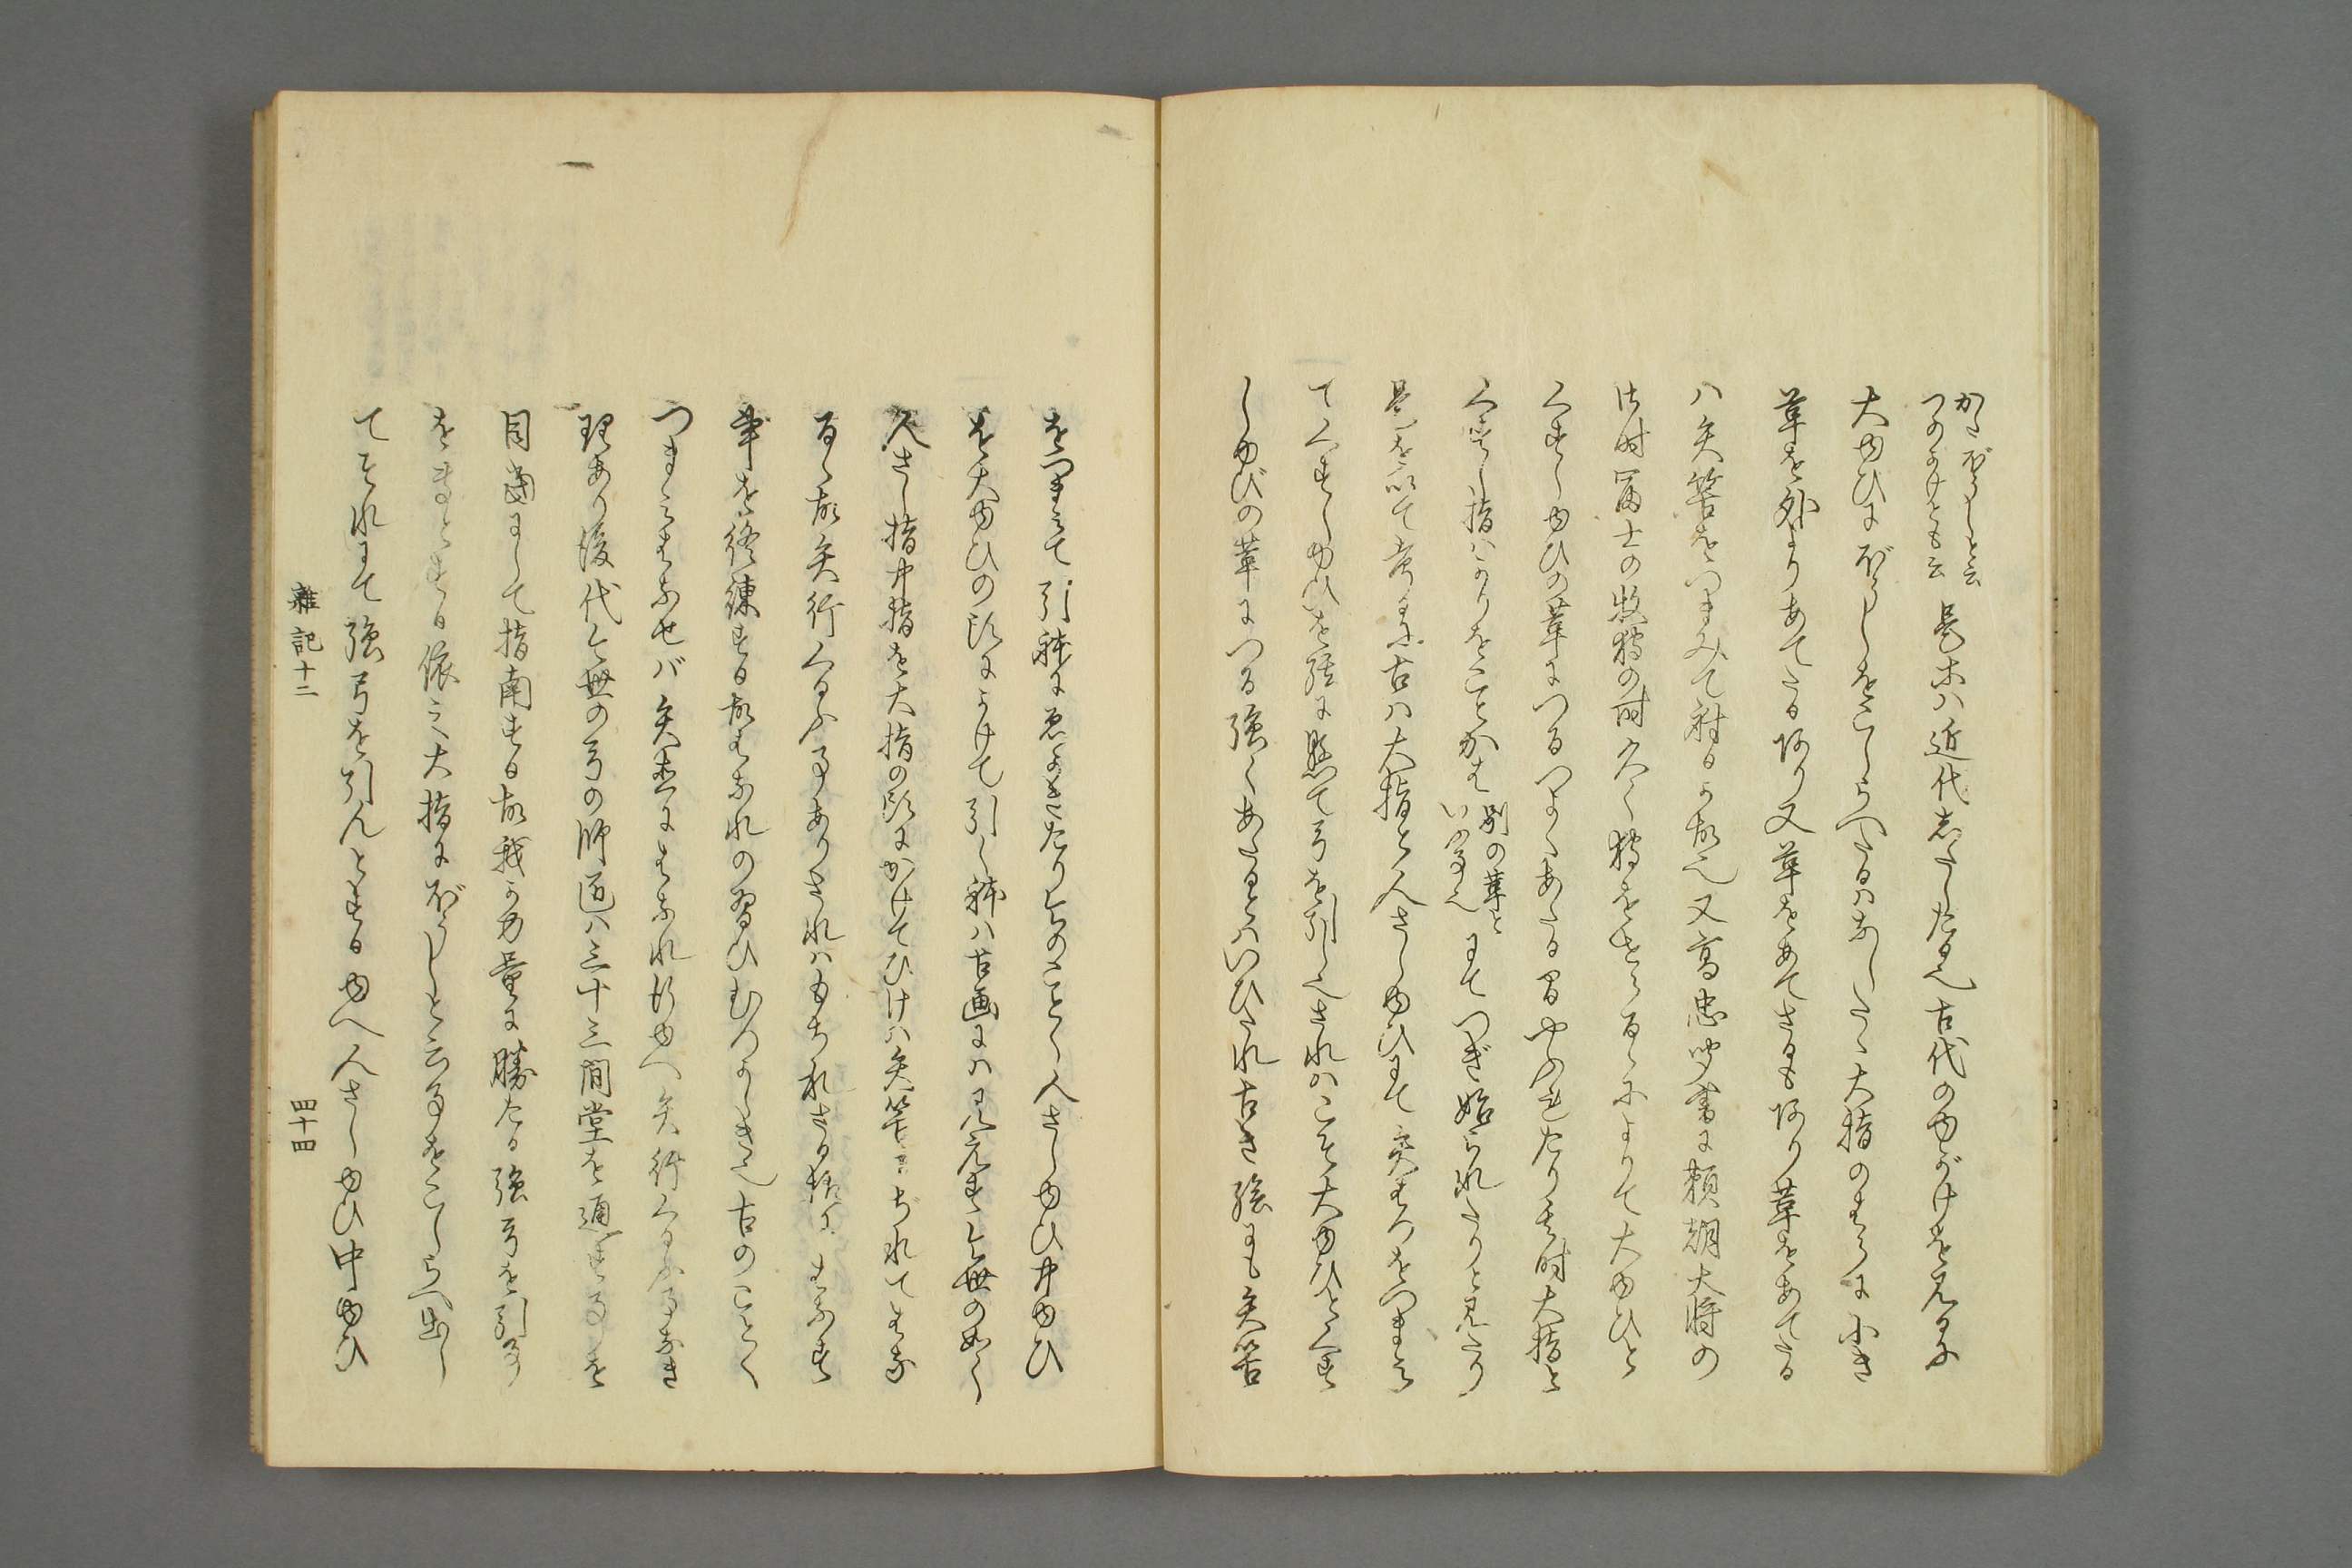 かたぼうしと云
つのかけとも云
是等ハ近代志いたしたる也古代のゆがけを見るに
大ゆびにぼうしをこしらへたるハなしたゝ大指のはらに小き
革を外よりあてたる阿り又革をあてざるも阿り革をあてたる
ハ矢筈をつまみて射るか故也又高忠聞書に頼朝大将の
御時冨士の牧狩の時久しく狩をせらるゝによりて大ゆびと
くすしゆびの革につるつよくあたる間やふれたり其時大指と
くすし指ハかりをことかは
別の革と
いふ事也
にてつぎ始られたりと見えたり
是を以て考るに古ハ大指と人さしゆびにて矢はつをつまみ
てくすしゆびを弦に懸て弓を引し也されハこそ大ゆびとくす
しゆびの革につる強くあたるとハいひたれ古き強にも矢筈
をつまみて引躰にゑかきたり今のことく人さしゆび中ゆび
を大ゆびの頭にかけて引し躰ハ古画にハ見えす今世の如く
人さし指中指を大指の頭にかけてひけハ矢筈こぢれてはな
るゝ故矢行くるふ事ありされハもぢれさる様にはなす
事を修練する故はなれの習ひむつかしき也古のことく
つまみはなせバ矢直にはなれ行ゆへ矢行くるふ事なき
理あり後代今世の弓の師道ハ三十三間堂を通す事を
目當にして指南する故我か力量に勝たる強弓を引事
を専とする依之大指にぼうしと云事をこしらへ出し
てそれにて強弓を引んとするゆへ人さしゆひ中ゆひ
雜記十二
四十四